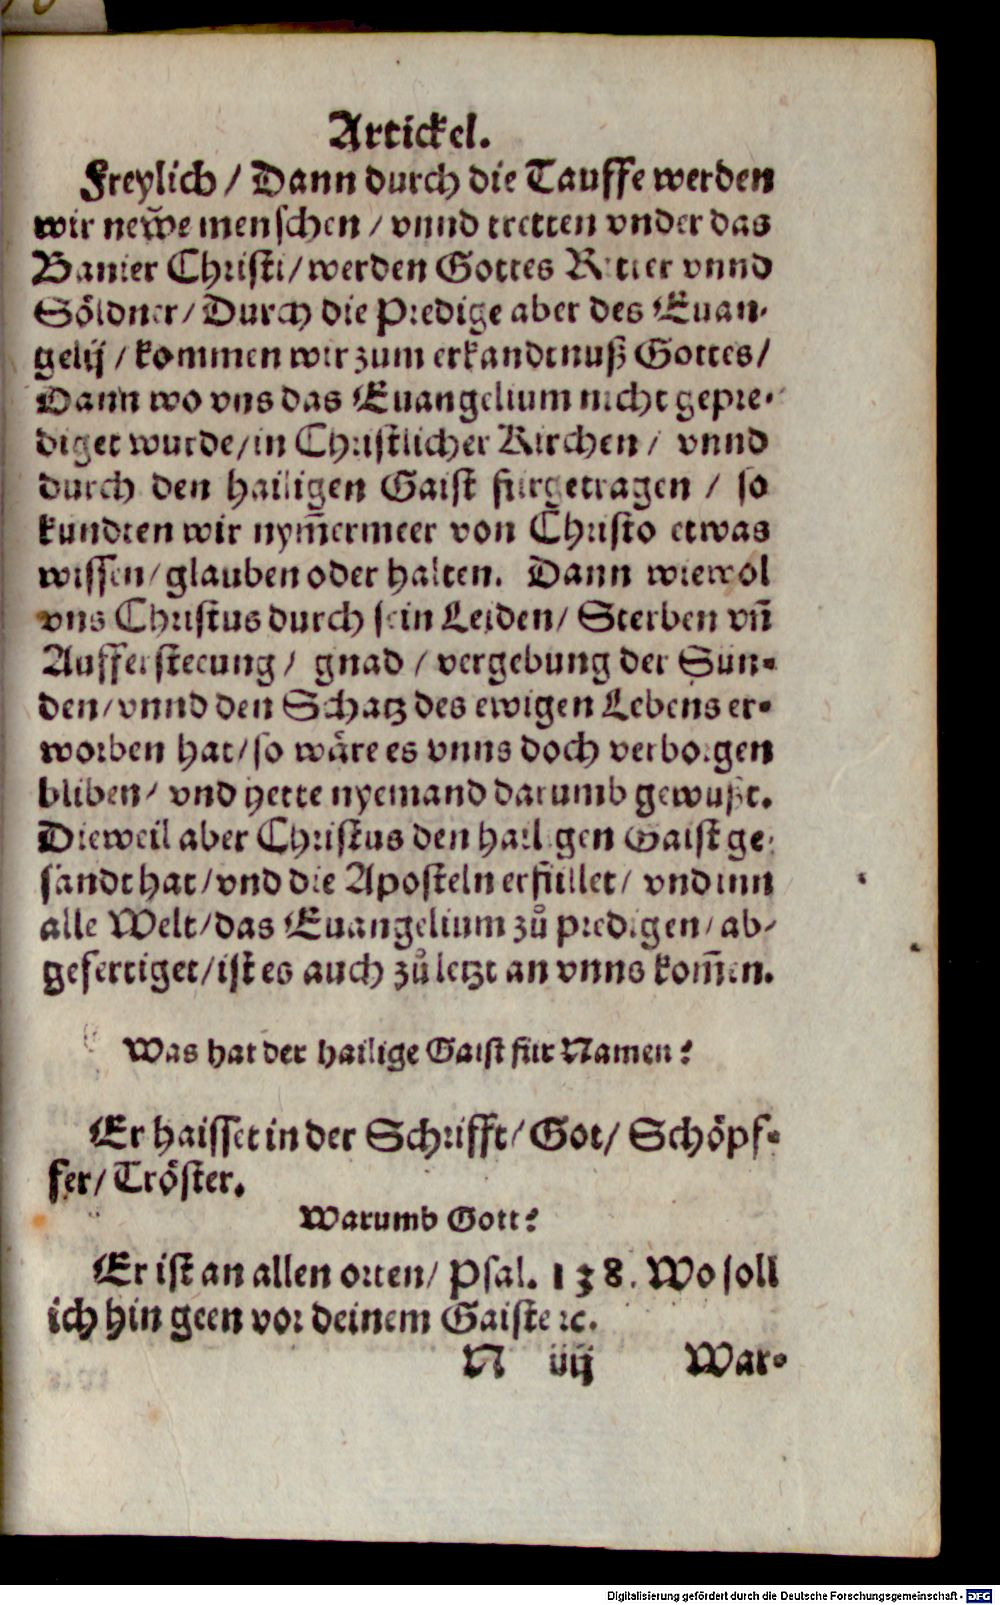 Artickel.
Freylich / Dann durch die Tauffe werden
wir new̃e menschen / vnnd tretten vnder das
Banier Christi / werden Gottes Ritter vnnd
Söldner / Durch die Predige aber des Euan-
gelij / kommen wir zum erkandtnuß Gottes /
Dann wo vns das Euangelium nicht gepre-
diget wurde / in Christlicher Kirchen / vnnd
durch den hailigen Gaist fürgetragen / so
kundten wir nym̃ermeer von Christo etwas
wissen / glauben oder halten. Dann wiewol
vns Christus durch sein Leiden / Sterben vñ
Auffersteeung / gnad / vergebung der Sün-
den / vnnd den Schatz des ewigen Lebens er-
worben hat / so wäre es vnns doch verborgen
bliben / vnd hette nyemand darumb gewußt.
Dieweil aber Christus den hailigen Gaist ge-
sandt hat / vnd die Aposteln erfüllet / vnd inn
alle Welt / das Euangelium zů predigen / ab-
gefertiget / ist es auch zů letzt an vnns kom̃en.
Was hat der hailige Gaist für Namen?
Er haisset in der Schrifft / Got / Schöpf-
fer / Tröster.
Warumb Gott?
Er ist an allen orten / Psal. 138. Wo soll
ich hin geen vor deinem Gaiste ꝛc.
N iiij War-
Digitalisierung gefördert durch die Deutsche Forschungsgemeinschaft - DFG